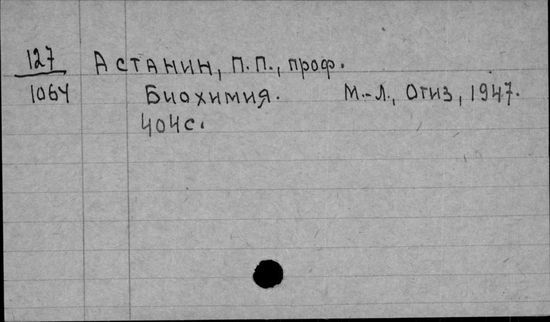 127 Астанин, П.П., проф.
1064 Биохимия. М.-Л., Огиз, 1947.
404с.